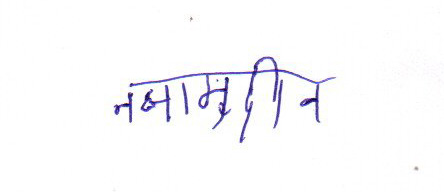 नजामुदीन